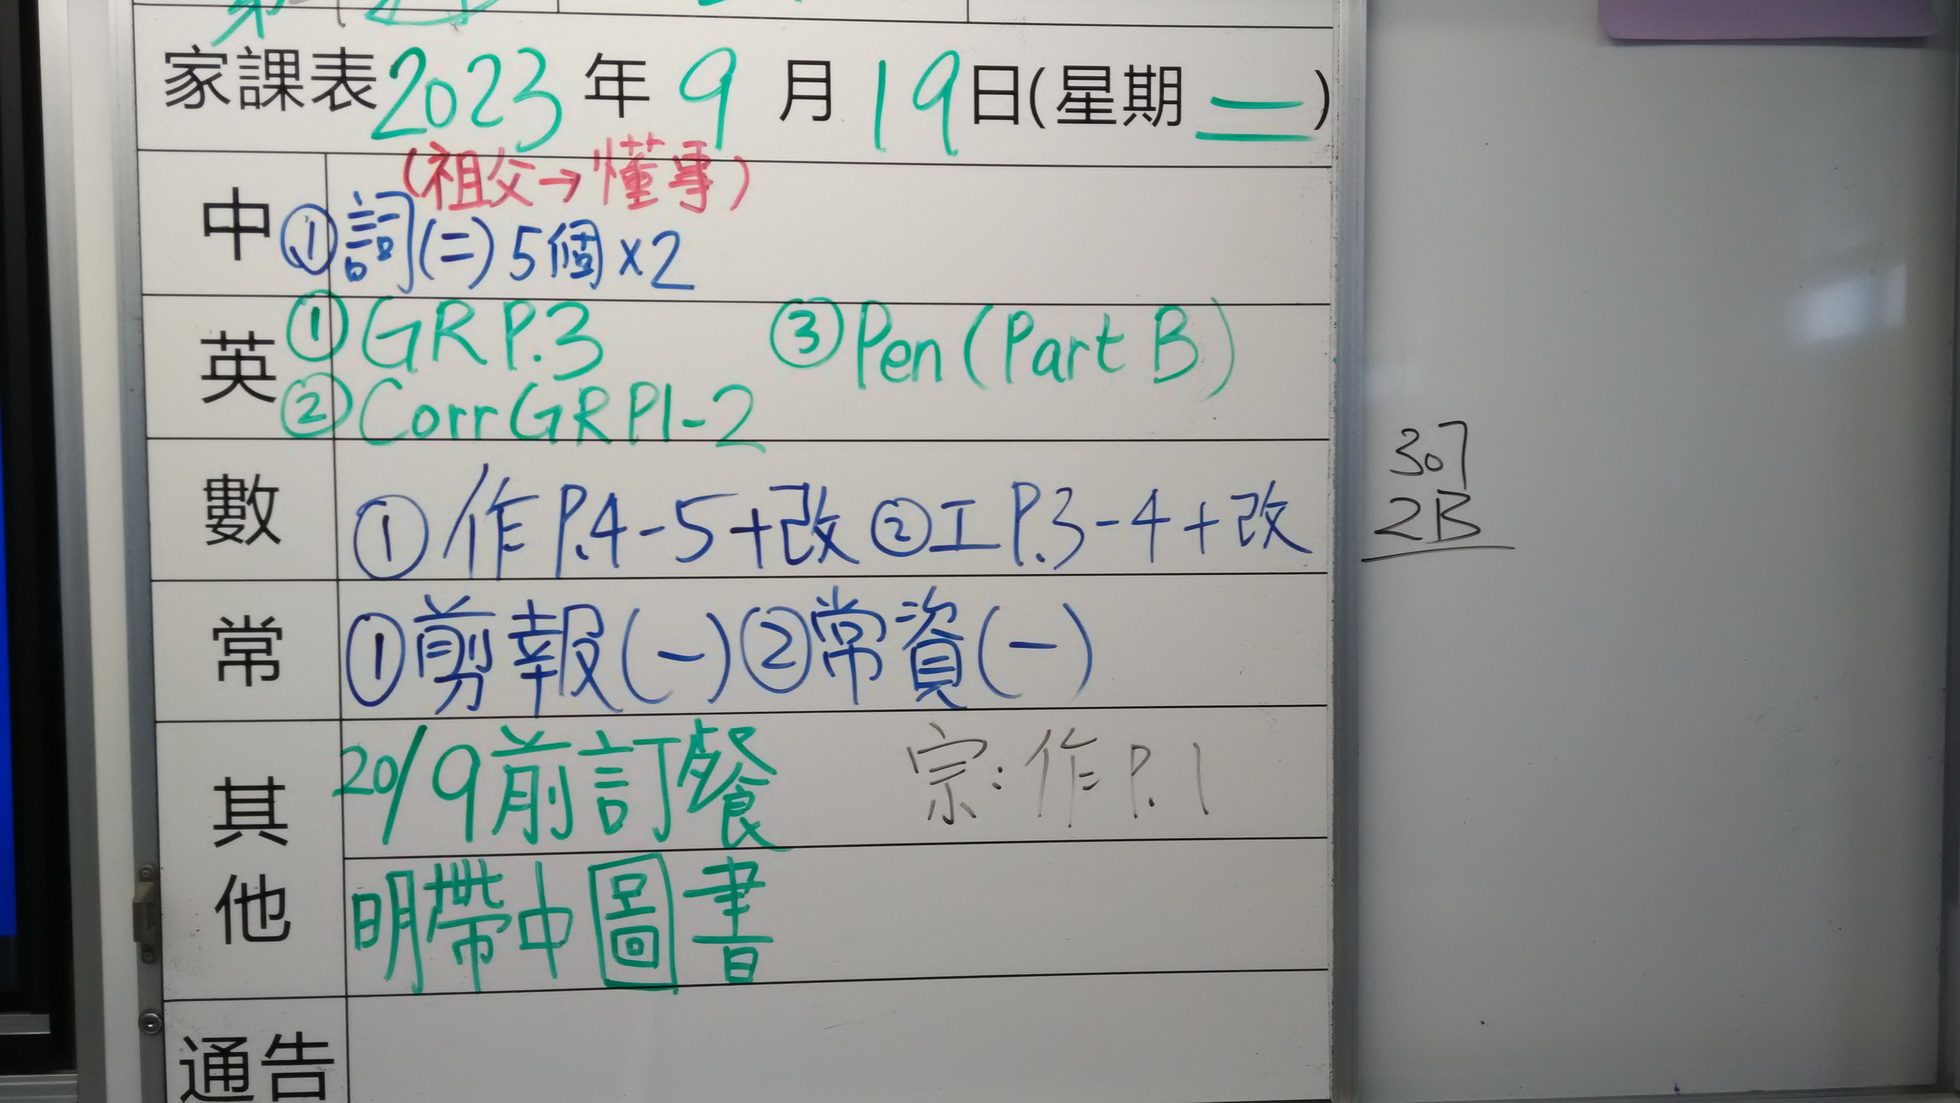 家課表 2023 年 9 月 19 日(星期 二)
(祖父→懂事)
中 ①詞(二) 5個×2
英 ①GR P.3 ③Pen (Part B)
②Corr GR P1-2
數 ①作 P.4-5+改 ②工 P.3-4+改
常 ①剪報(一) ②常資(一)
其他
20/9前訂餐 宗:作 P.1
明帶中圖書
通告
307
2B